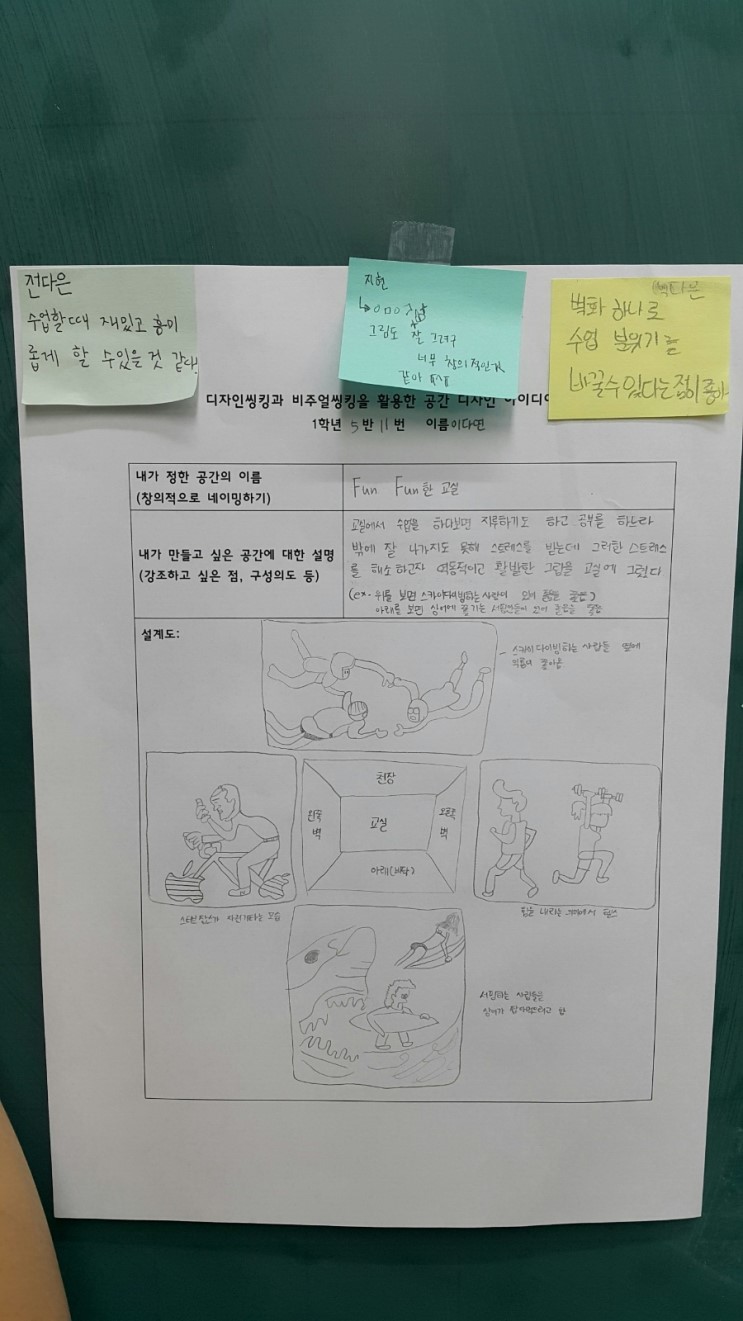 전다은
수업할때 재밌고 흥미
롭게 할 수있을 것 같다.
지현
그림도 잘 그려구
너무 창의적인거
같아
벽화 하나로
수업 분위기를
바꿀수 있다는점이 좋아
디자인씽킹과 비주얼씽킹을 활용한 공간 디자인 아이디어
1학년 5반 11번 이름이다연
내가 정한 공간의 이름
(창의적으로 네이밍하기)
Fun Fun한 교실
내가 만들고 싶은 공간에 대한 설명
(강조하고 싶은 점, 구성의도 등)
교실에서 수업을 하다보면 지루하기도 하고 공부를 하느라
밖에 잘 나가지도 못해 스트레스를 받는데 그러한 스트레스
를 해소하고자 역동적이고 활발한 그림을 교실에 그렸다.
(ex. 위를 보면 스카이다이빙하는 사람이 있어
아래를 보면 상어에 쫓기는 서핑
설계도:
스카이다이빙하는 사람들 옆에
천장
왼쪽
벽
교실
오른쪽
벽
아래(바닥)
스티브 잡스가 자전거타는 모습
서핑하는 사람들을
상어가 잡아먹으려고 함